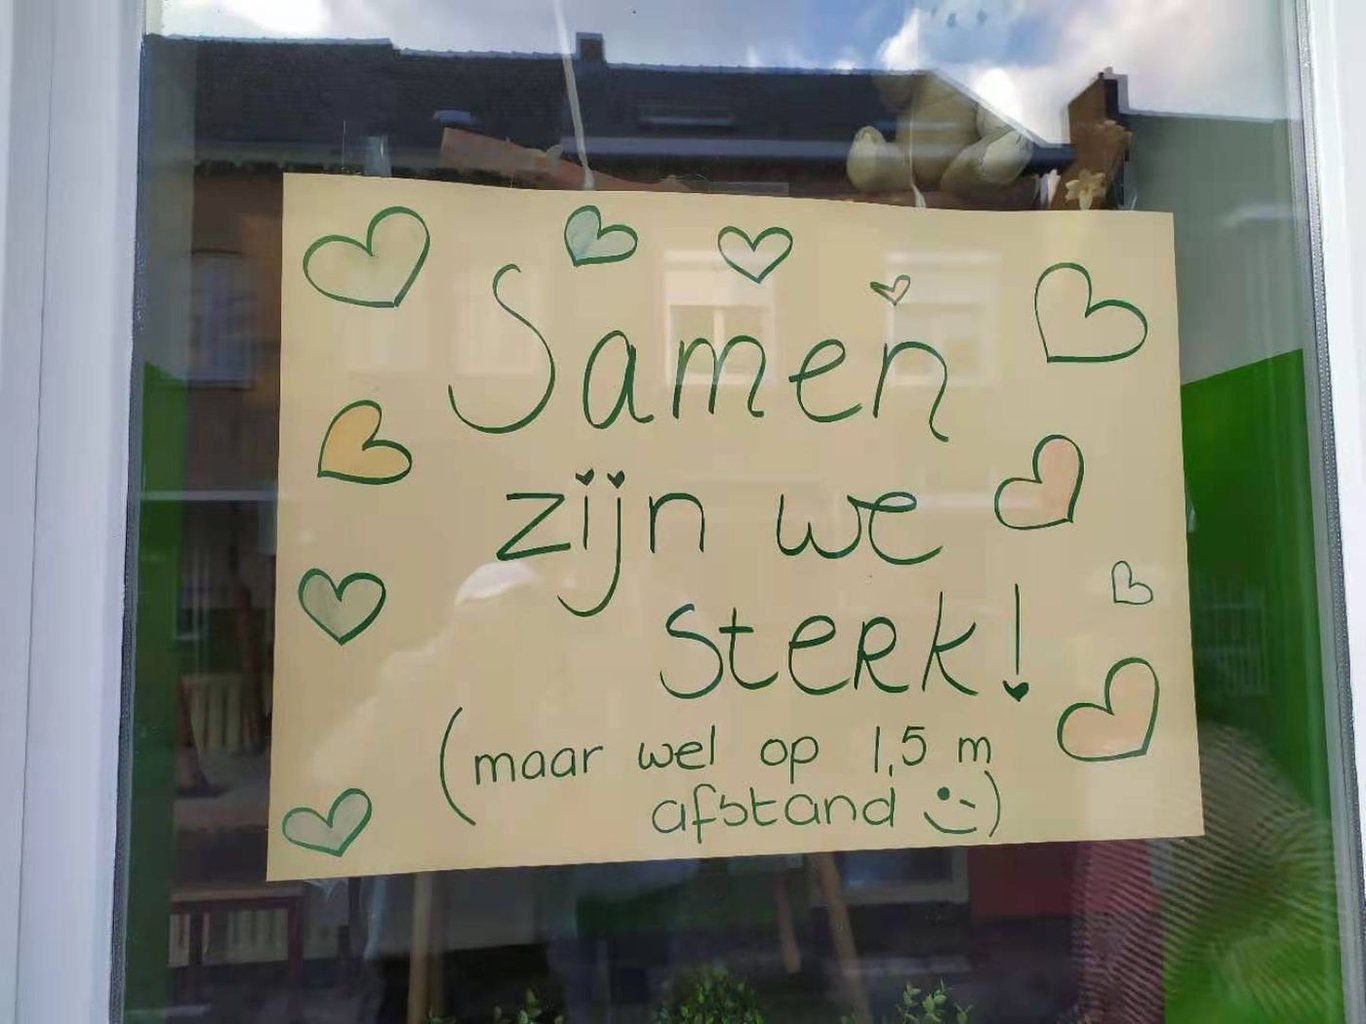 Samen
zijn we
sterk!
(maar wel op 1,5 m
afstand ;-))